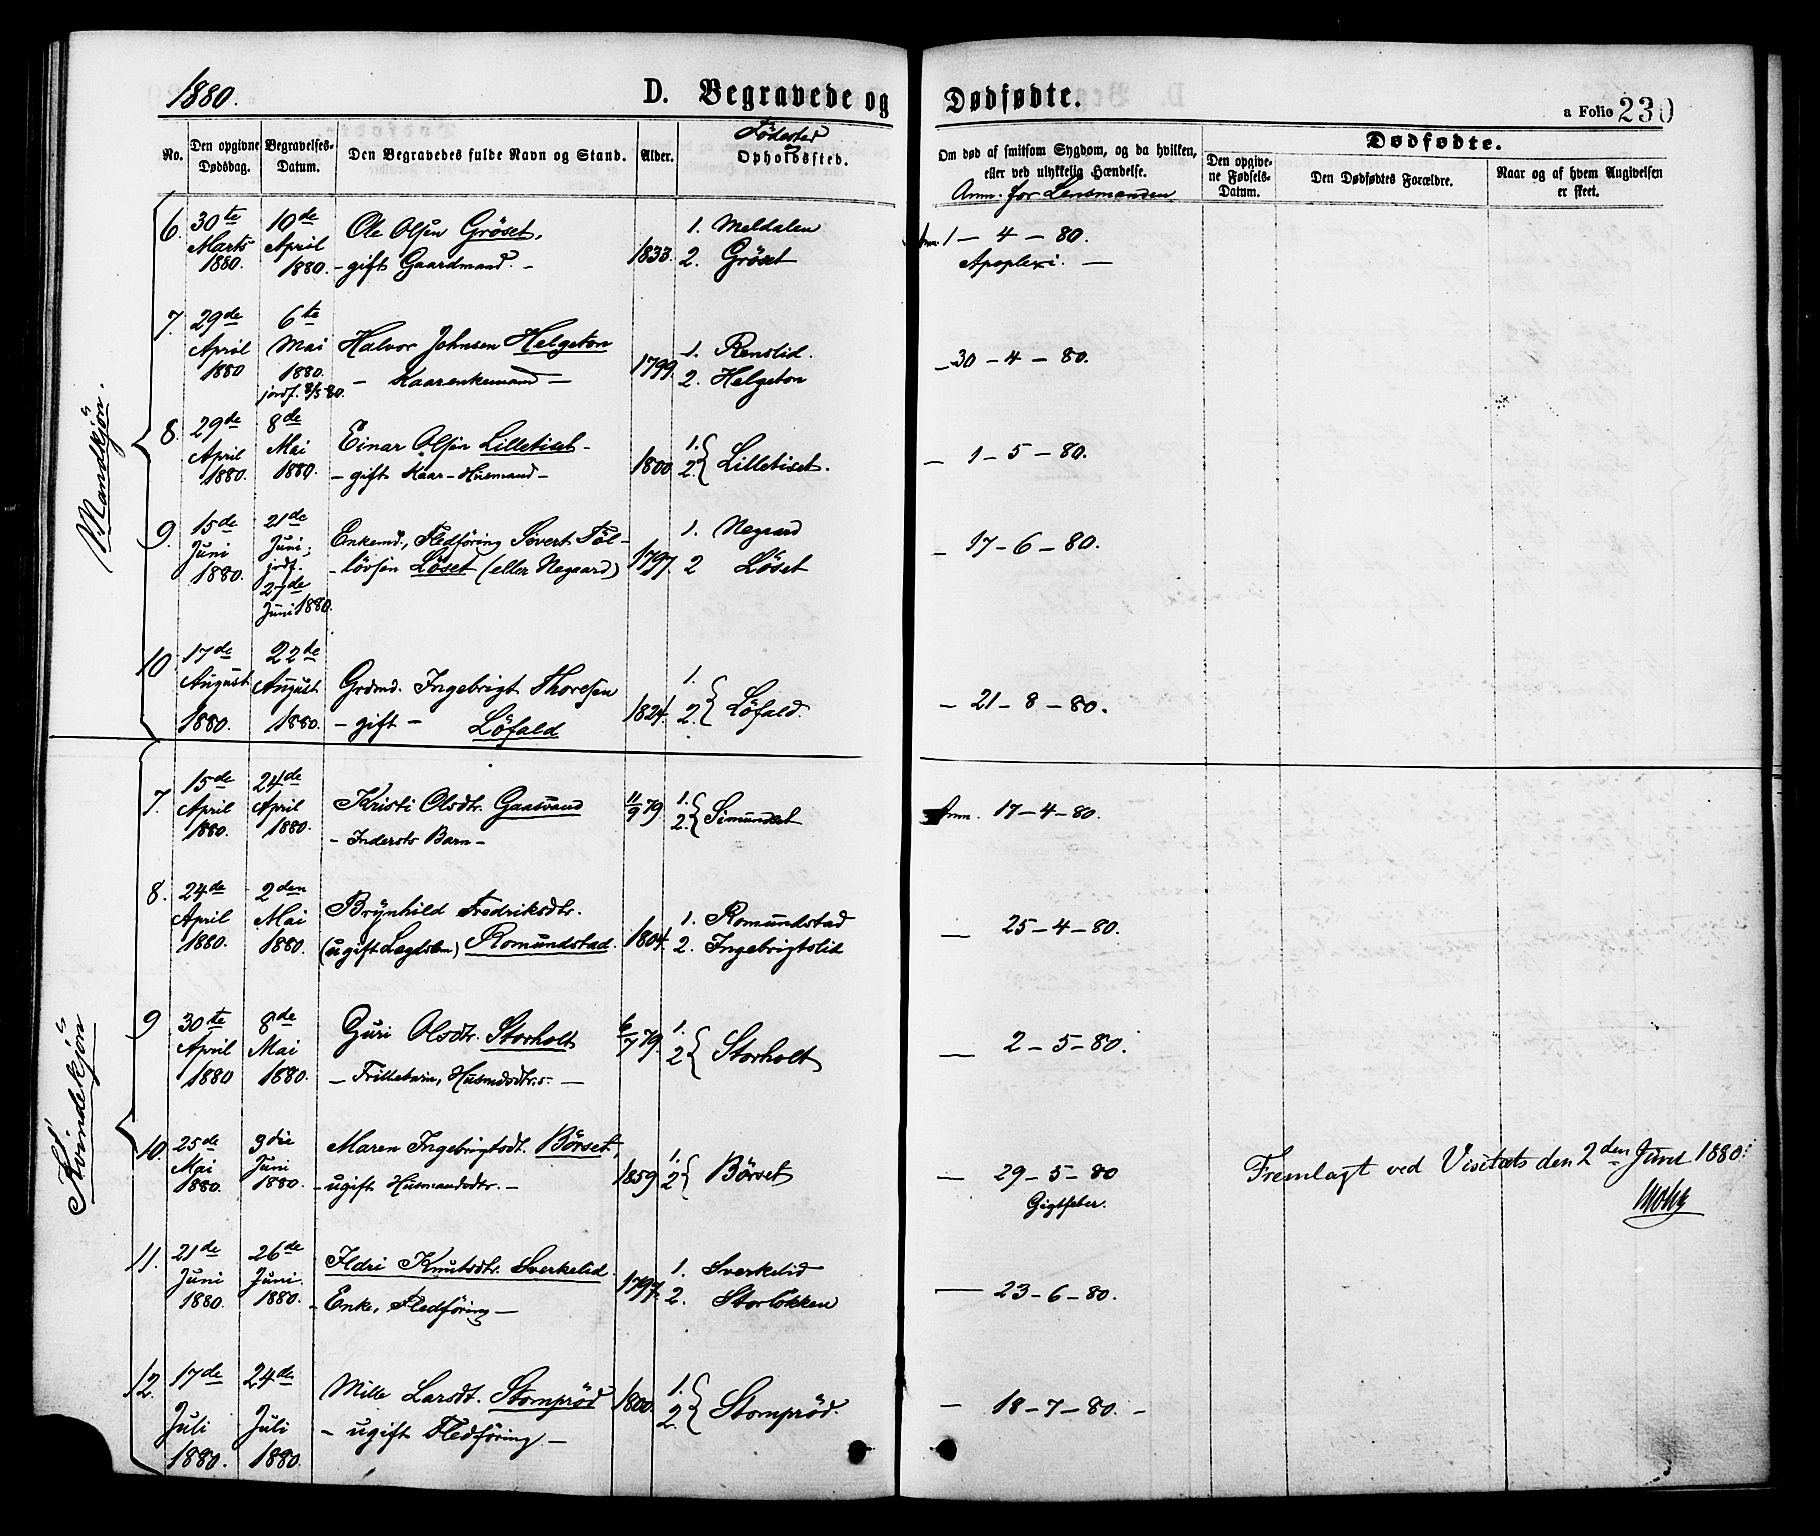 1880. D. Begravede og Dødfødte. a Folio 230
No. Den opgivne Dødsdag. Begravelses-Datum. Den Begravedes fulde Navn og Stand. Alder. Fødested Opholdssted.
Om død af smitsom Sygdom, og da hvilken, eller ved ulykkelig Hændelse. Anm. for Lensmanden
Dødfødte.
Den opgivne Fødsels-Datum. Den Dødfødtes Forældre. Naar og af hvem Angivelsen er skeet.
Mandkjön.
6. 30te 10de Ole Olsen Gröset, 1. Meldalen Anm. 1 - 4 - 80.
Marts April
1880. 1880. - gift Gaardmand. - 1833. 2. Gröset Apoplexi. -
7. 29de 6te
April Mai Halvor Johnsen Helgeton 1. Renslid. - 30 - 4 - 80.
1880 1880. - Kaarenkemand - 1799. 2. Helgeton
jordf. 8/5 80.
8. 29de 8de
April Mai Einar Olsen Lilletiset - 1. Lilletiset. - 1 - 5 - 80.
1880. 1880. - gift Kaar-Husmand - 1800. 2.
9. 15de 21de Enkemd., Fledföring Sivert Föl- 1. Negaard - 17 - 6 - 80.
Juni Juni,
1880. jordf. lövsen Löset (eller Negaard) 1797. 2 Löset
27de
Juni 1880.
10 17de 22de
August August Grdmd. Ingebrigt Thoresen 1. Löfald. - 21 - 8 - 80.
1880. 1880. - gift - Löfald 1824. 2.
Kvindekjön
7. 15de 24de
April April Kristi Olsdtr. Gaasvand 11/9 79. 1. Simundset Anm. 17 - 4 - 80.
1880. 1880. - Indersts Barn - 2.
8. 24de 2den
April Mai Brynhild Fredriksdtr. 1. Romundstad - 25 - 4 - 80.
1880. 1880. (ugift Lægdslem) Romundstad. 1804. 2. Ingebrigtslid
9 30te 8de Guri Olsdtr. Storholt 6/7 79. 1. Storholt - 2 - 5 - 80.
April Mai 2
1880 1880. - Frillebarn, Husmdsdtr.s. -
10. 25de 3die Maren Ingebrigtsdt. Börset, 1. Börset - 29 - 5 - 80
Mai Juni
1880. 1880. - ugift Husmandsdtr. - 1859. 2 Gigtfeber.
Fremlagt ved Visitats den 2den Juni 1880.
11. 21de 26de Ildri Knutsdtr. Sverkelid. 1. Sverkelid - 23 - 6 - 80.
Juni Juni.
1880. 1880. - Enke, Fledföring - 1797. 2. Storlökken
12. 17de 24de Mille Larsdt. Stompröd 1800. 1. Stompröd. - 18 - 7 - 80. -
Juli Juli - ugift Fledföring. - 2.
1880. 1880.